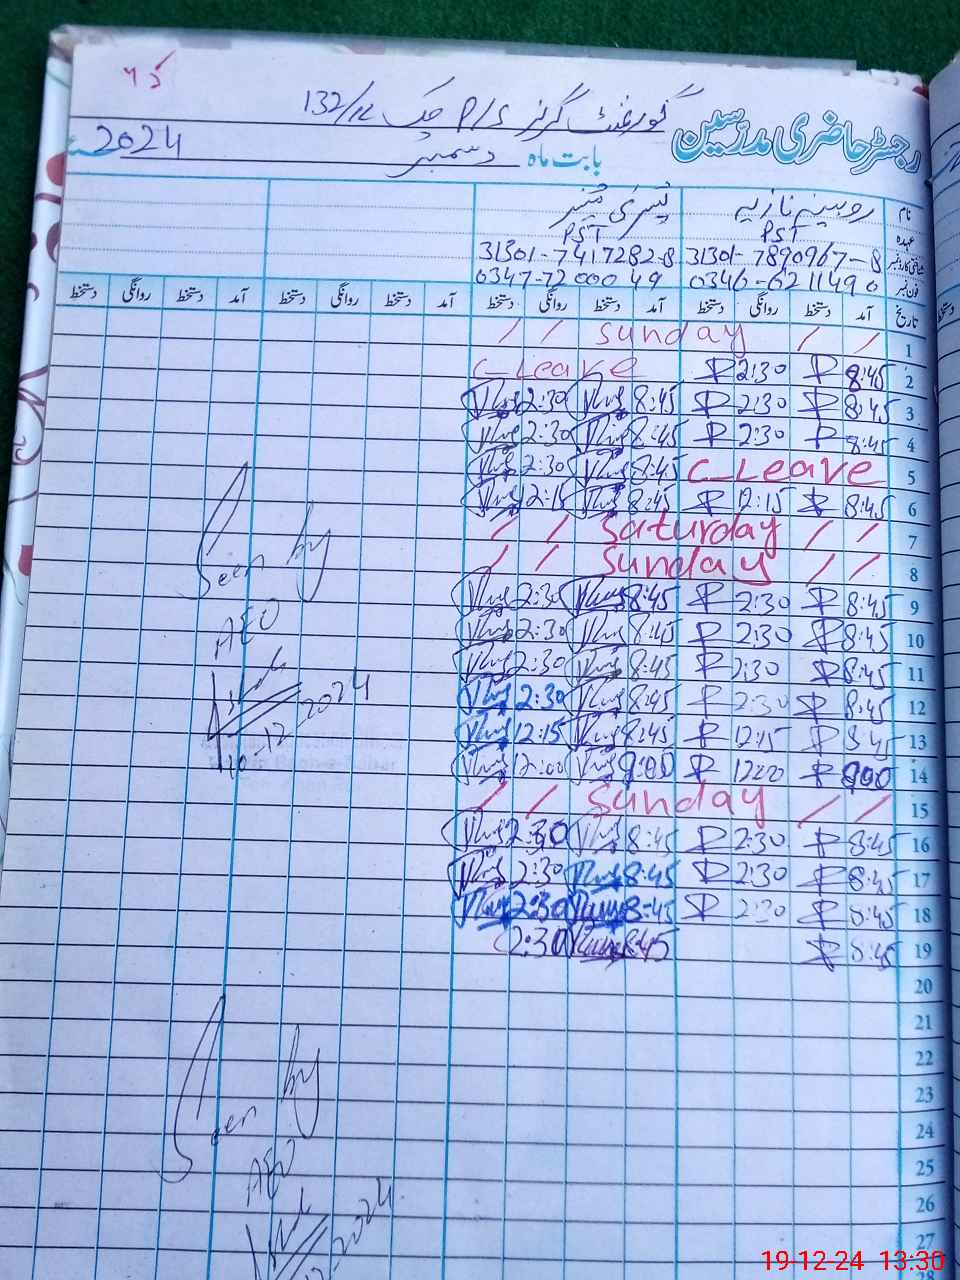 رجسٹر حاضری مدرسین
گورنمنٹ گرلز P/S چک 132/1L
بابت ماہ دسمبر 2024
نام روبینہ نازیہ
عہدہ PST PST
شناختی کارڈ نمبر 31301-7890967-8 31301-7417282-8
فون نمبر 0346-6211490 0347-7200049
تاریخ آمد دستخط روانگی دستخط آمد دستخط روانگی دستخط آمد دستخط روانگی دستخط آمد دستخط روانگی دستخط
1 / / Sunday / /
2 8:45 2:30 C_Leave
3 8:45 2:30 8:45 2:30
4 8:45 2:30 8:45 2:30
5 C_Leave 8:45 2:30
6 8:45 12:15 8:45 12:15
7 / / Saturday / /
8 / / Sunday / /
9 8:45 2:30 8:45 2:30
10 8:45 2:30 8:45 2:30
11 8:45 2:30 8:45 2:30
12 8:45 2:30 8:45 2:30
13 8:45 12:15 8:45 12:15
14 9:00 12:00 9:00 12:00
15 / / Sunday / /
16 8:45 2:30 8:45 2:30
17 8:45 2:30 8:45 2:30
18 8:45 2:30 8:45 2:30
19 8:45 8:45 2:30
20
21
22
23
24
25
26
27
28
Seen by
AEO
12-2024
Seen by
AEO
2024
19-12-24 13:30